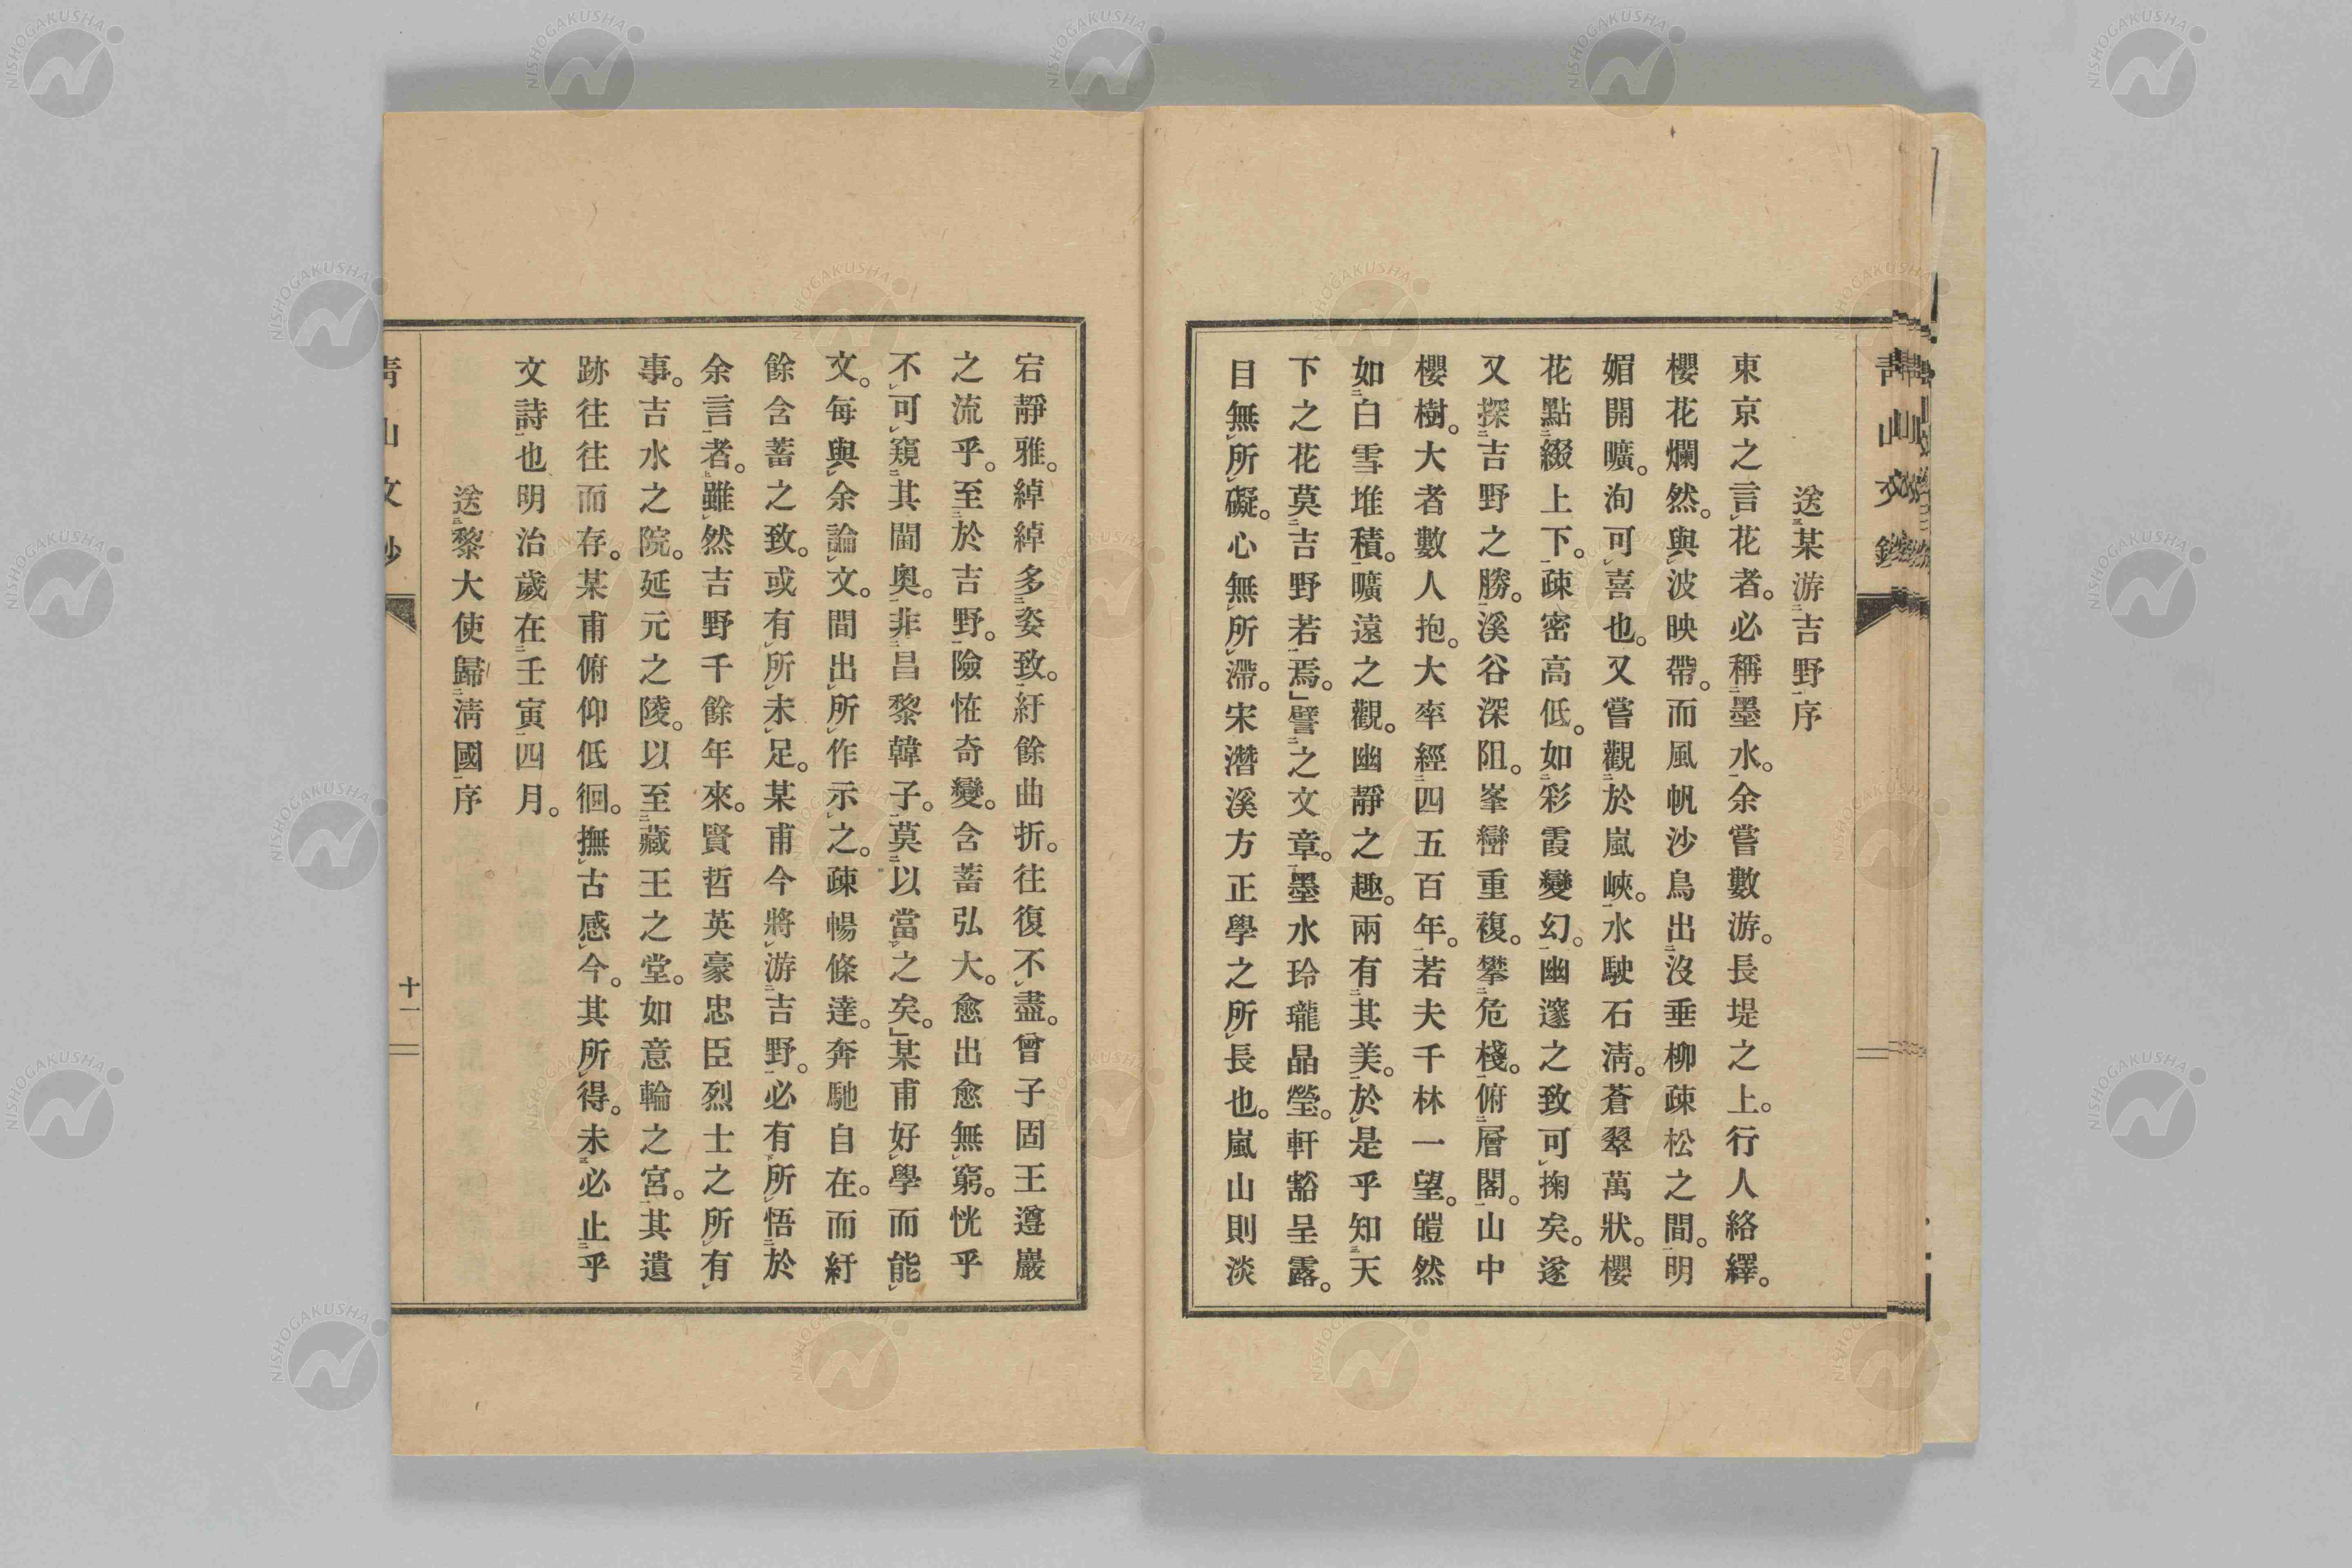 送某游吉野序
東京之言花者。必稱墨水。余嘗數游。長堤之上。行人絡繹。
櫻花爛然。與波映帶。而風帆沙鳥出沒垂柳疎松之間。明
媚開曠。洵可喜也。又嘗觀於嵐峽。水駛石淸。蒼翠萬狀。櫻
花點綴上下。疎密高低。如彩霞變幻。幽邃之致可掬矣。遂
又探吉野之勝。溪谷深阻。峯巒重複。攀危棧。俯層閣。山中
櫻樹。大者數人抱。大率經四五百年。若夫千林一望。皚然
如白雪堆積。曠遠之觀。幽靜之趣。兩有其美。於是乎知天
下之花莫吉野若焉。」譬之文章。墨水玲瓏晶瑩。軒豁呈露。
目無所礙。心無所滯。宋潛溪方正學之所長也。嵐山則淡
宕靜雅。綽綽多姿致。紆餘曲折。往復不盡。曾子固王遵巖
之流乎。至於吉野。險恠奇變。含蓄弘大。愈出愈無窮。恍乎
不可窺其閫奧。非昌黎韓子。莫以當之矣。」某甫好學而能
文。每與余論文。間出所作示之。疎暢條達。奔馳自在。而紆
餘含蓄之致。或有所未足。某甫今將游吉野。必有所悟於
余言者。雖然吉野千餘年來。賢哲英豪忠臣烈士之所有
事。吉水之院。延元之陵。以至藏王之堂。如意輪之宮。其遺
跡往往而存。某甫俯仰低徊。撫古感今。其所得。未必止乎
文詩也明治歲在壬寅四月。
送黎大使歸淸國序
十一